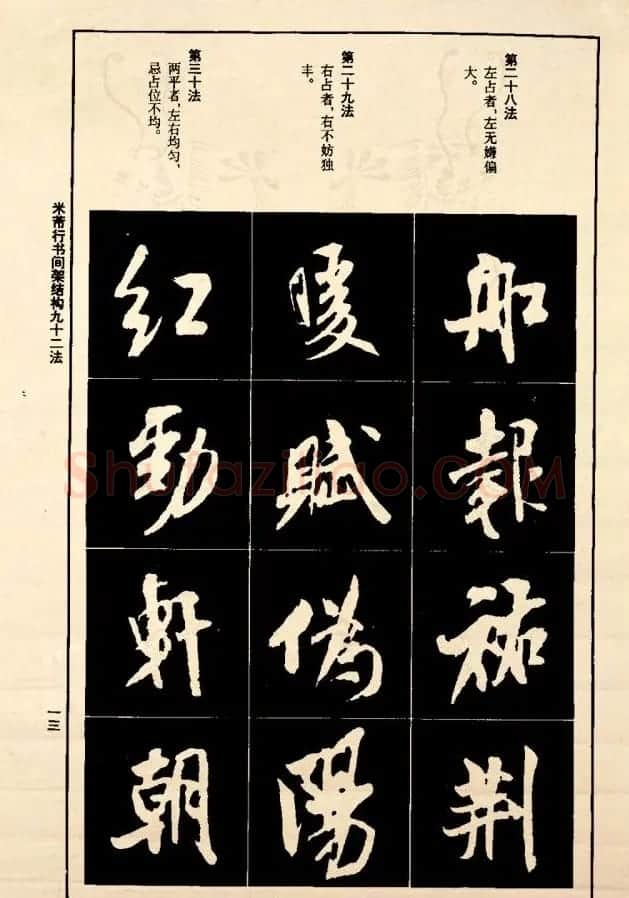 第二十八法
左占者，左无嫌偏
大。
第二十九法
右占者，右不妨独
丰。
第三十法
两平者，左右均匀，
忌占位不均。
船
報
祐
荆
暖
赋
偽
陽
红
勁
軒
朝
米芾行书间架结构九十二法
一三
Shufaziliao.COM